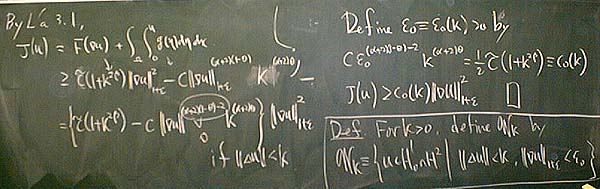 By L'a 3.1,
J(u) = F(∇u) + ∫_Ω ∫_0^u g(η)dηdx
≥ c̃(1+k^{2β})‖∇u‖²_{1+ε} − C‖∇u‖^{(α+2)(1-θ)}_{1+ε} k^{(α+2)θ}
= { c̃(1+k^{2β}) − C‖∇u‖^{(α+2)(1-θ)-2} k^{(α+2)θ} } ‖∇u‖²_{1+ε}
0
if ‖Δu‖<k
Define ε₀ ≡ ε₀(k) > 0 by
Cε₀^{(α+2)(1-θ)-2} k^{(α+2)θ} = ½ c̃(1+k^{2β}) ≡ c₀(k)
J(u) ≥ c₀(k)‖∇u‖²_{1+ε} □
Def. For k>0, define 𝒩_k by
𝒩_k ≡ { u ∈ H¹₀∩H² | ‖Δu‖<k, ‖∇u‖_{1+ε}<ε₀ }